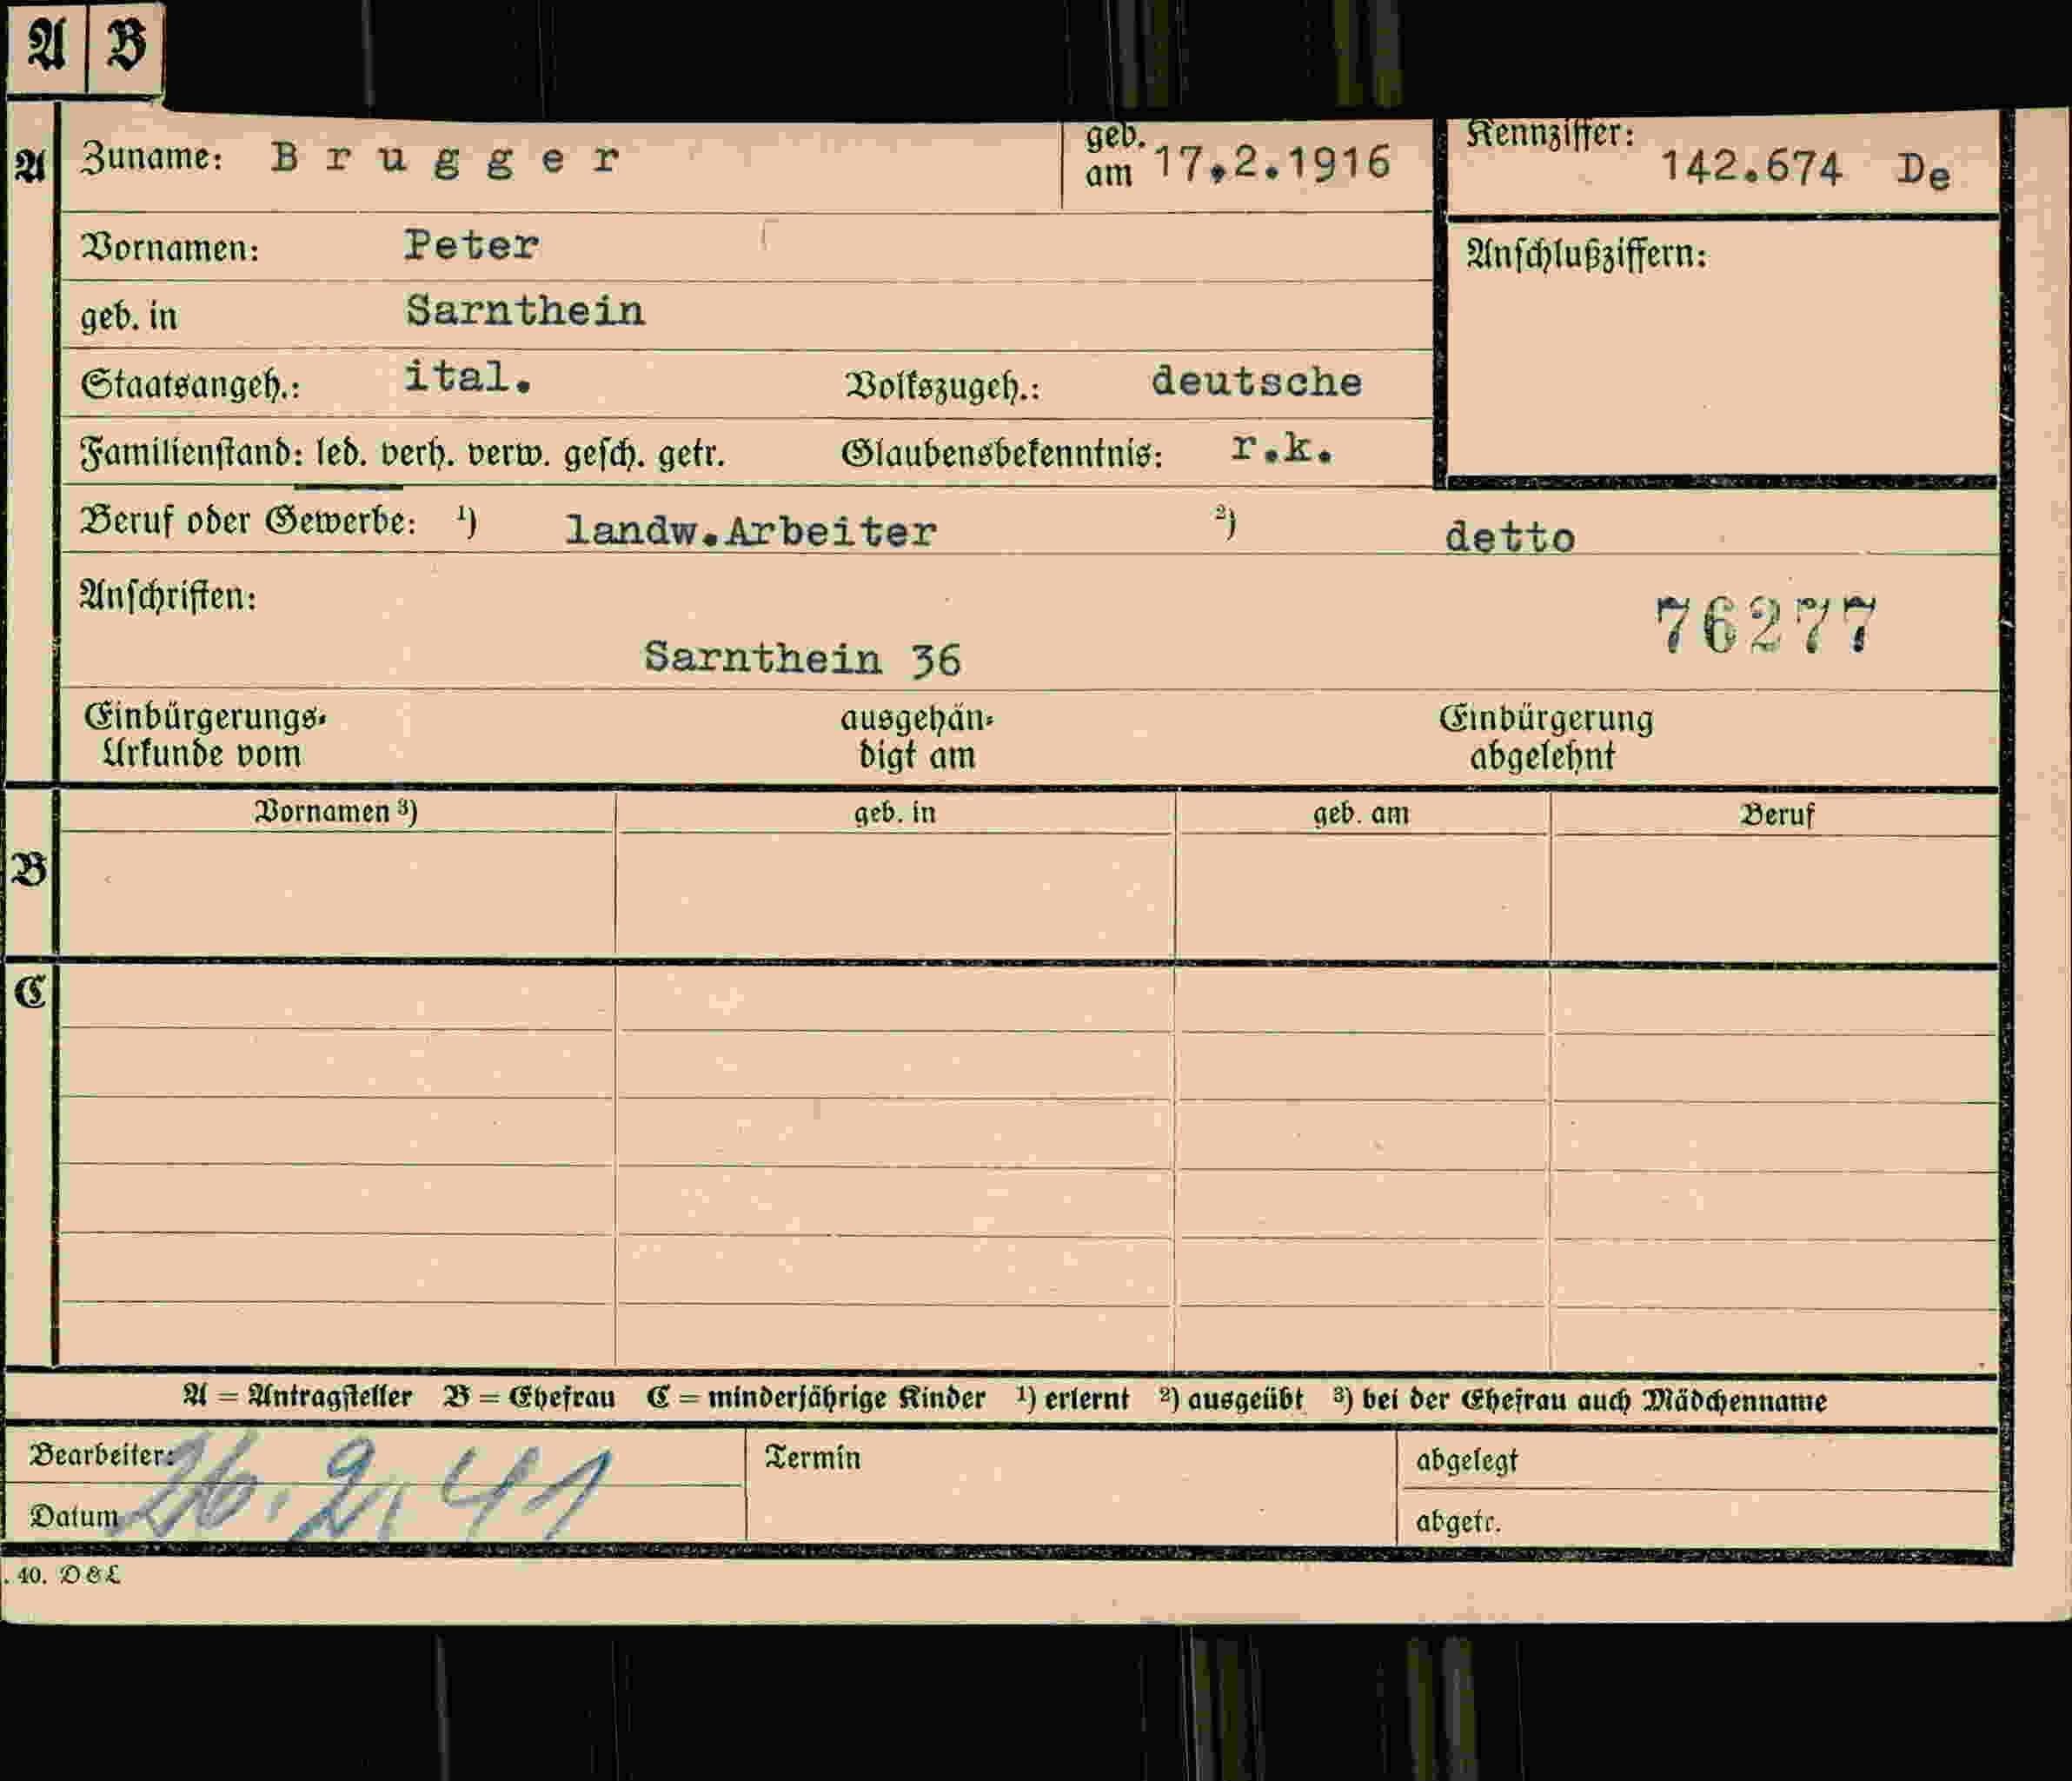 A B
A Zuname: Brugger geb. am 17.2.1916 Kennziffer: 142.674 De
Vornamen: Peter Anschlußziffern:
geb. in Sarnthein
Staatsangeh.: ital. Volkszugeh.: deutsche
Familienstand: led. verh. verw. gesch. getr. Glaubensbekenntnis: r.k.
Beruf oder Gewerbe: 1) landw.Arbeiter 2) detto
Anschriften: 76277
Sarnthein 36
Einbürgerungs- ausgehän- Einbürgerung
Urkunde vom digt am abgelehnt
Vornamen 3) geb. in geb. am Beruf
B
C
A = Antragsteller B = Ehefrau C = minderjährige Kinder 1) erlernt 2) ausgeübt 3) bei der Ehefrau auch Mädchenname
Bearbeiter: Termin abgelegt
26.2.41
Datum abgetr.
. 40. D&L